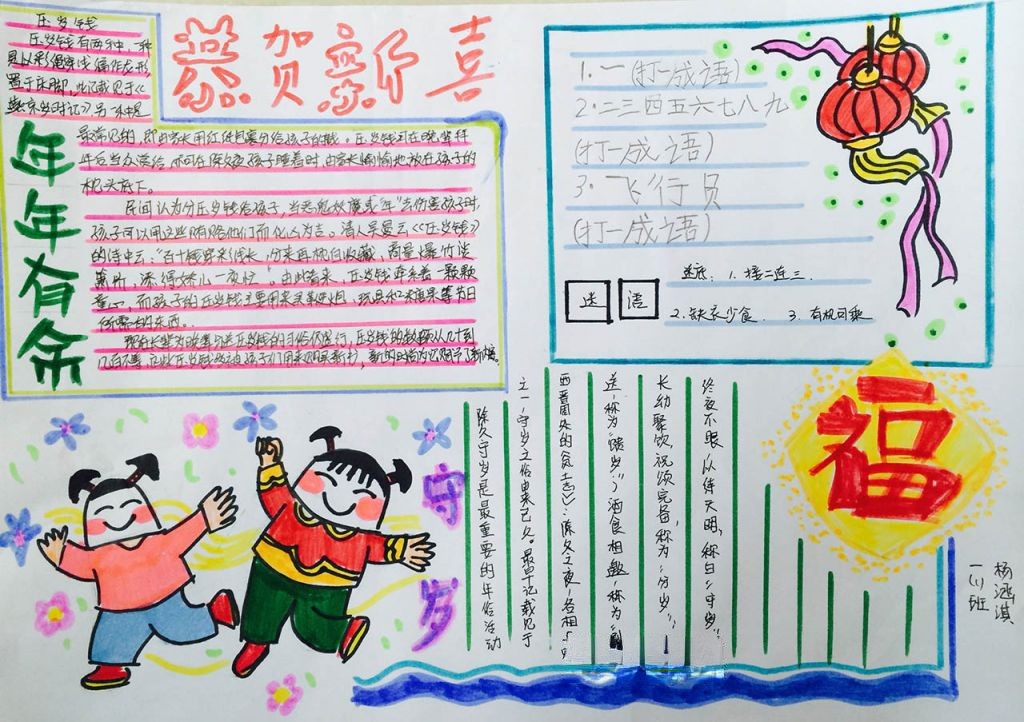 恭贺新喜
压岁钱
压岁钱有两种,一种
是以彩绳穿线编作龙形,
置于床脚,此记载见于《
燕京岁时记》另一种是
最常见的,即由家长用红纸包裹分给孩子的钱。压岁钱可在晚辈拜
年后当众赏给,亦可在除夕夜孩子睡着时,由家长偷偷地放在孩子的
枕头底下。
民间认为分压岁钱给孩子,当恶鬼妖魔或"年"去伤害孩子时,
孩子可以用这些钱贿赂他们而化凶为吉。清人吴曼云《压岁钱》
的诗中云:"百十钱穿彩线长,分来再枕自收藏,商量爆竹谈
箫价,添得娇儿一夜忙"。由此看来,压岁钱牵系着一颗颗
童心,而孩子的压岁钱主要用来买鞭炮,玩具和糖果等节日
所需的东西。
年年有余
1.一(打一成语)
2.二三四五六七八九
(打一成语)
3.飞行员
(打一成语)
谜语
谜底:1.接二连三
2.缺衣少食 3.有机可乘
福
守岁
除夕守岁是最重要的年俗活动
之一,守岁之俗由来已久。最早记载见于
西晋周处的《
志》:除夕之夜,各相与
送,称为"馈岁";酒食相邀,称为"别
长幼聚饮,祝颂完备,称为"分岁";
终夜不眠,以待天明,称曰"守岁"。
一(1)班
杨涵淇